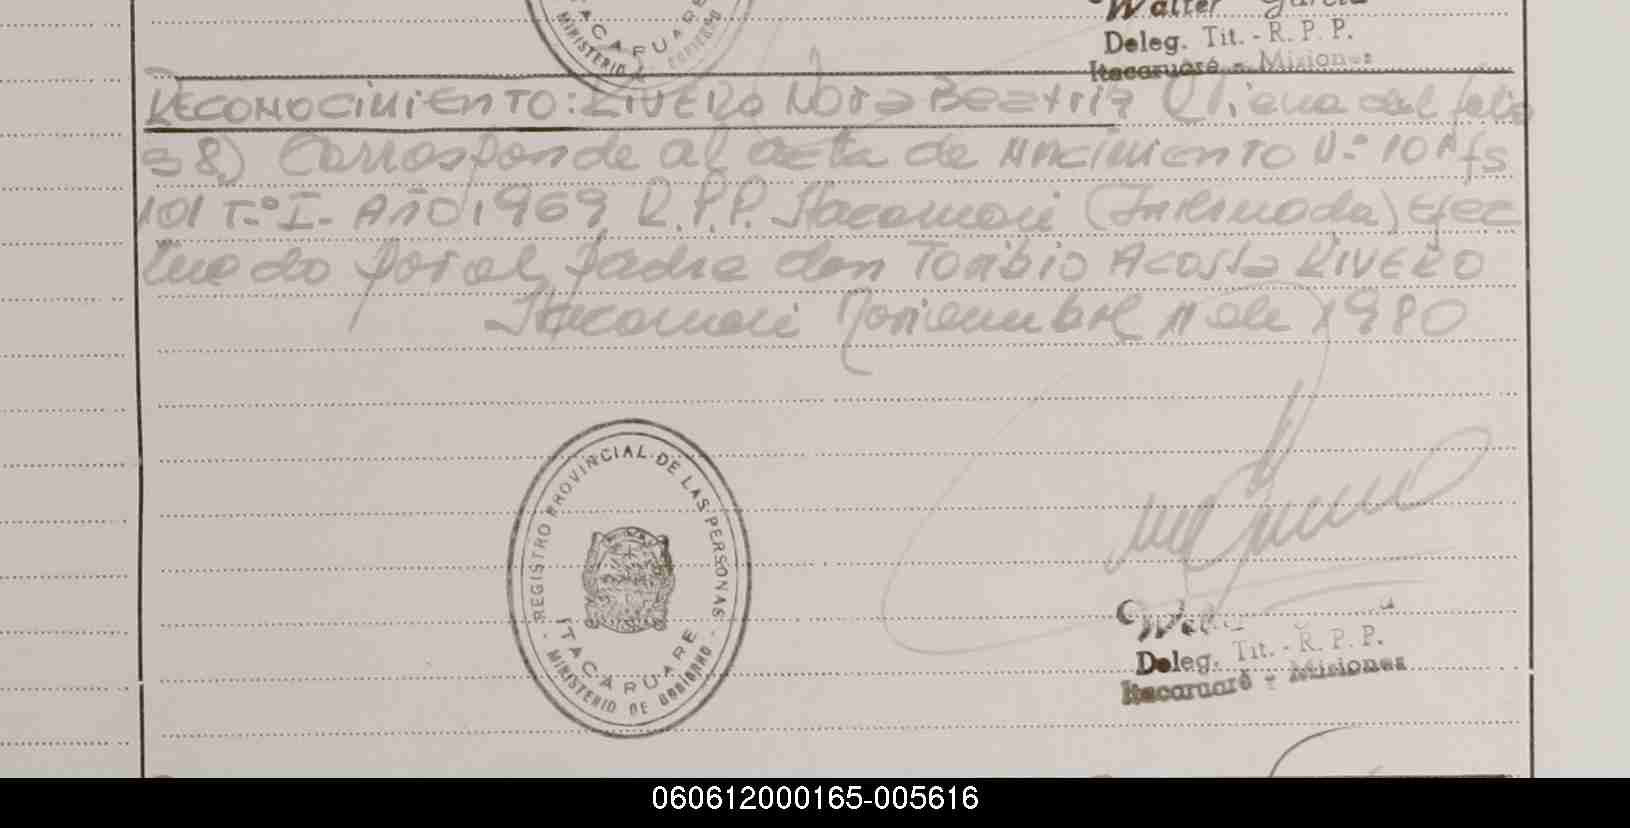 Walter García
Deleg. Tit. - R. P. P.
Itacaruaré - Misiones
ITACARUARE
MINISTERIO DE GOBIERNO
RECONOCIMIENTO: RIVERO Nora Beatriz (Viene del folio
38) Corresponde al acta de NACIMIENTO N.º 101 fs
101 T.º I. AÑO 1969 R.P.P. Itacaruaré (Intermedia) Efec
tuado por el padre don Toribio Acosta RIVERO
Itacaruaré Noviembre 11 de 1980
- REGISTRO PROVINCIAL DE LAS PERSONAS -
ITACARUARE
MINISTERIO DE GOBIERNO
Deleg. Tit. - R. P. P.
Itacaruaré - Misiones
060612000165-005616